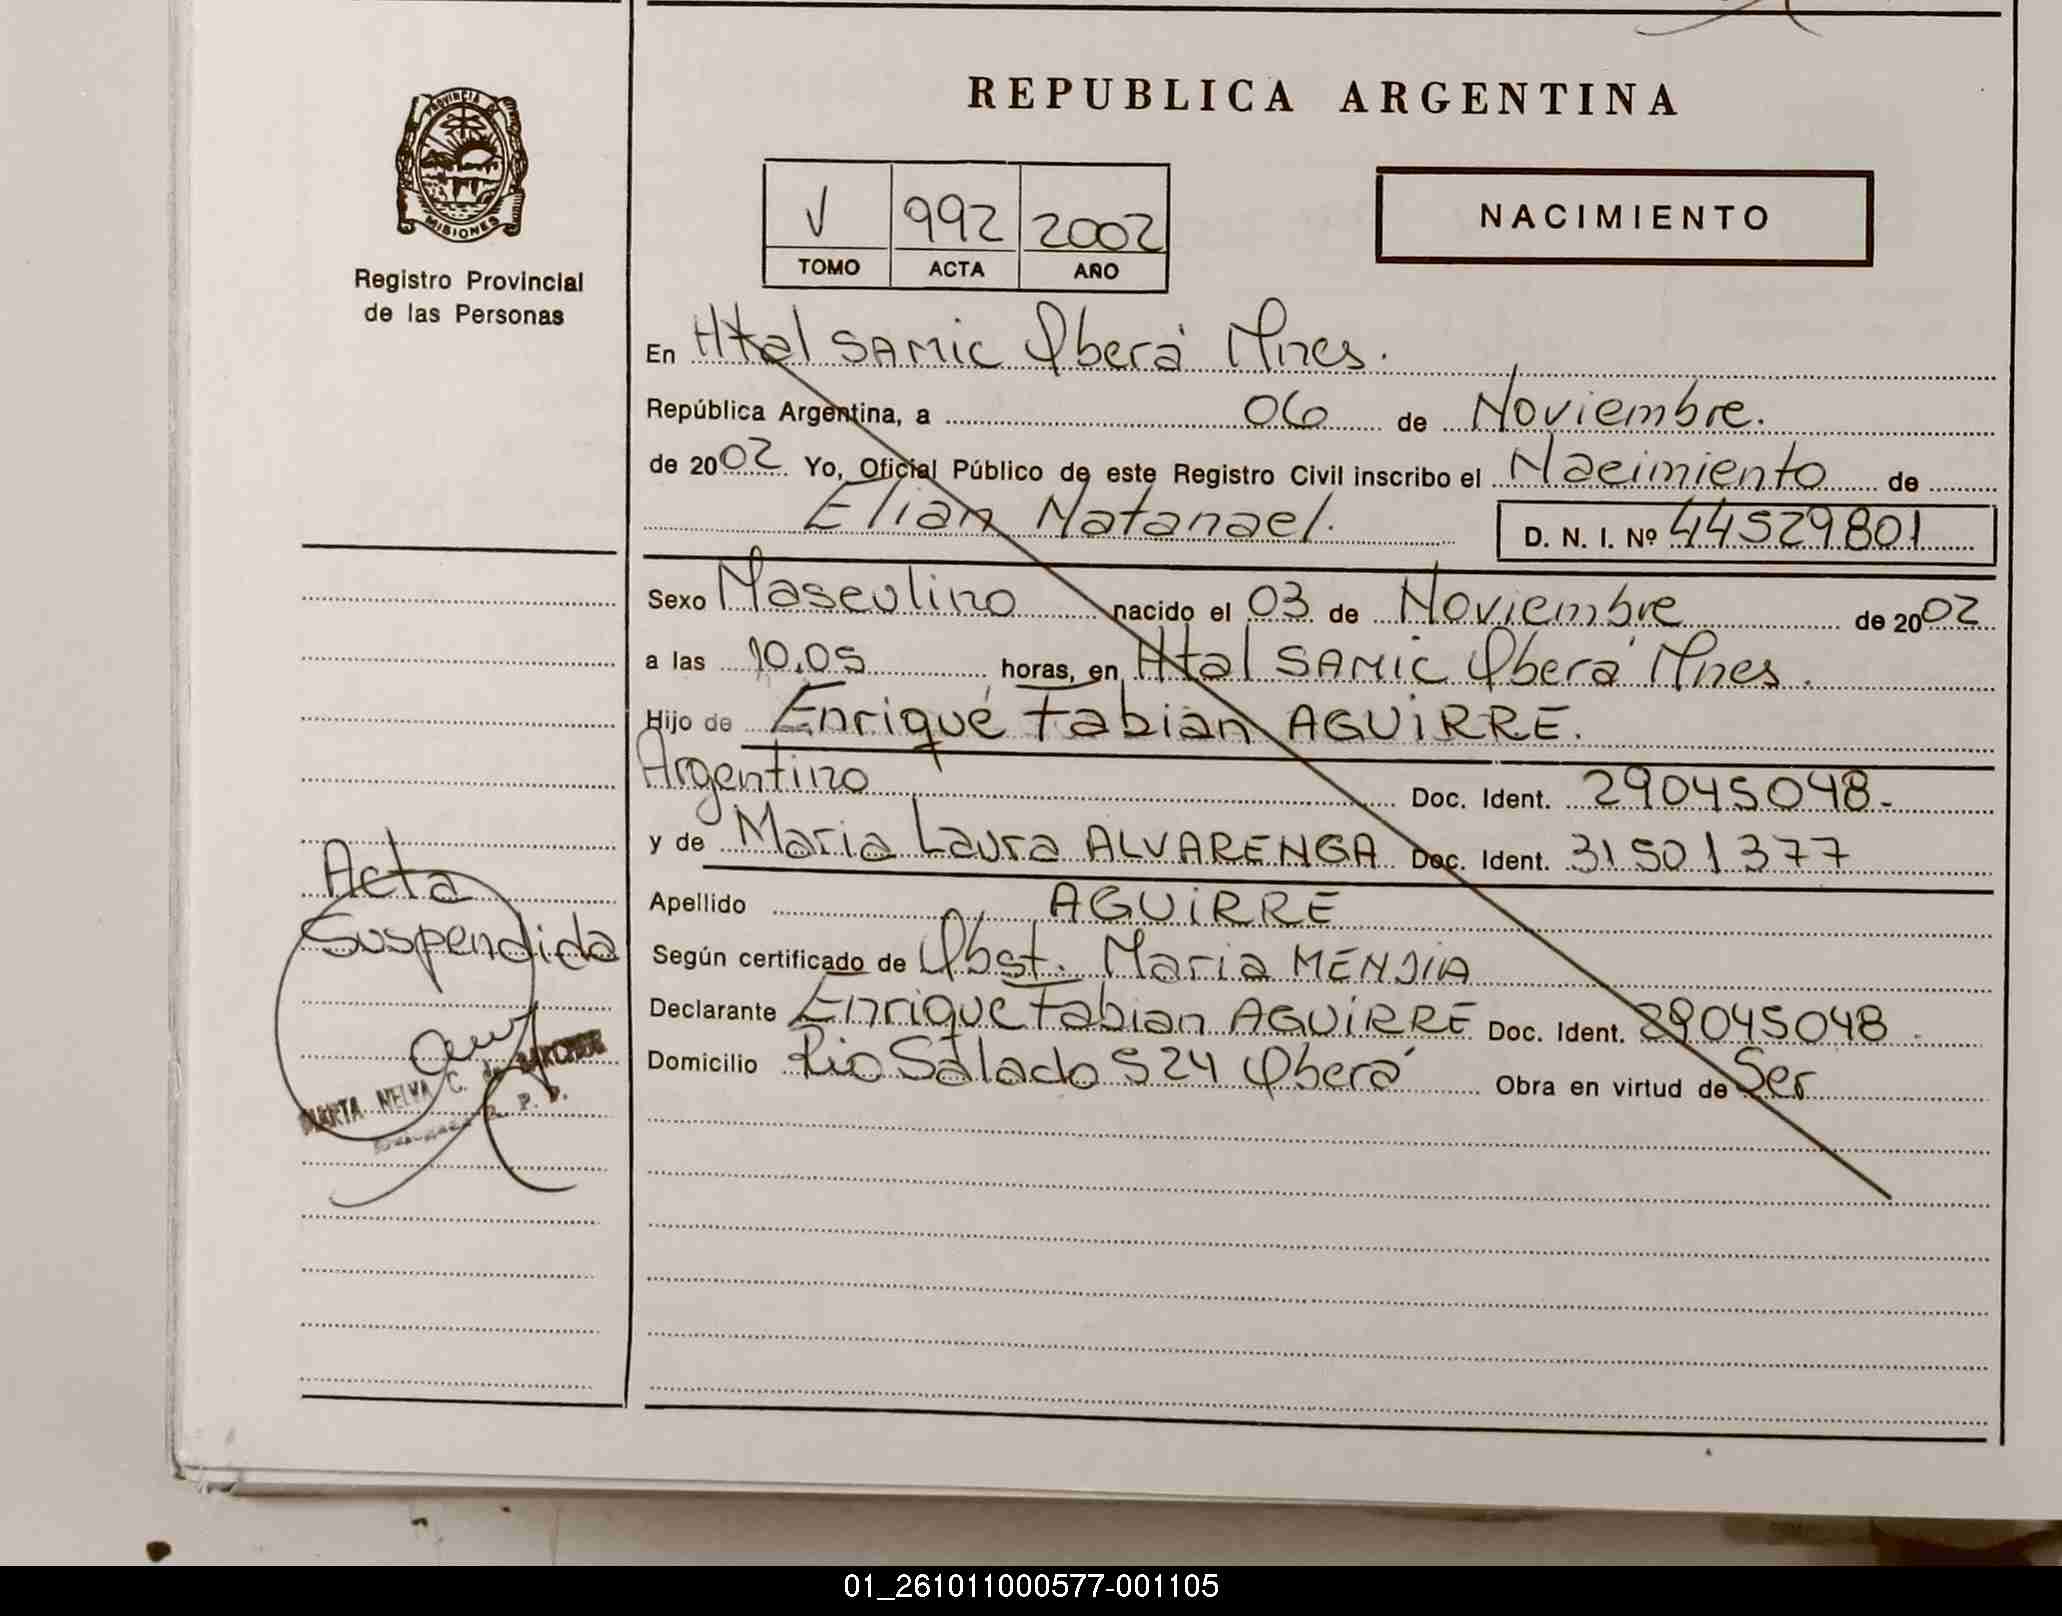 REPUBLICA ARGENTINA
PROVINCIA DE
MISIONES
Registro Provincial
de las Personas
V 992 2002
TOMO ACTA AÑO
NACIMIENTO
En Htal SAMIC Oberá Mnes.
República Argentina, a 06 de Noviembre.
de 2002 Yo, Oficial Público de este Registro Civil inscribo el Nacimiento de
Elian Natanael. D. N. I. Nº 44529801
Sexo Masculino nacido el 03 de Noviembre de 2002
a las 10.05 horas, en Htal SAMIC Oberá Mnes.
Hijo de Enrique Fabian AGUIRRE.
Argentino Doc. Ident. 29045048-
y de Maria Laura ALVARENGA Doc. Ident. 31501377
Apellido AGUIRRE
Según certificado de Obst. Maria MENJIA
Declarante Enrique Fabian AGUIRRE Doc. Ident. 29045048.
Domicilio Rio Salado 524 Oberá Obra en virtud de Ser
Acta
Suspendida
MARTA NELVA C. de
R. P. P.
01_261011000577-001105